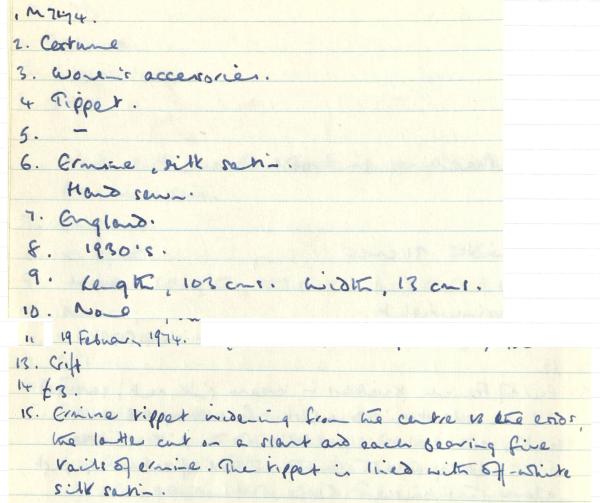 1. M7474.
2. Costume
3. Women's accessories.
4 Tippet.
5. —
6. Ermine, silk satin.
Hand sewn.
7. England.
8. 1930's.
9. Length, 103 cms. Width, 13 cms.
10. None
11 19 February 1974.
13. Gift
14 £3.
15. Ermine tippet widening from the centre to the ends,
the latter cut on a slant and each bearing five
tails of ermine. The tippet is lined with off-white
silk satin.